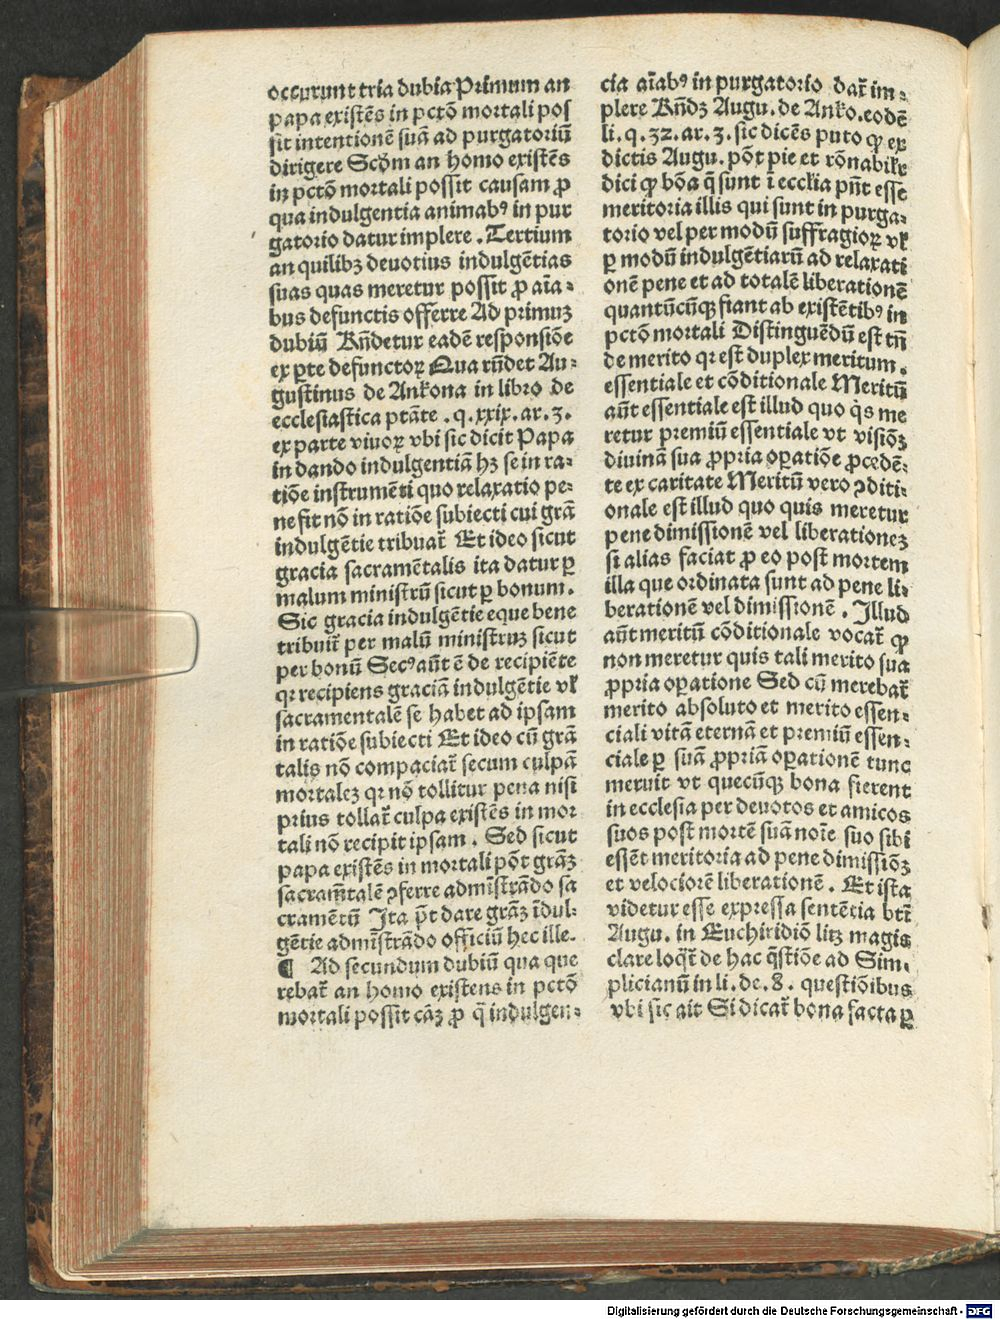 occurunt tria dubia Primum an
papa existēs in pctō mortali pos
sit intentionē suā ad purgatoriū
dirigere Scōm an homo existēs
in pctō mortali possit causam ꝓ
qua indulgentia animabꝰ in pur
gatorio datur implere . Tertium
an quilibꝫ deuotius indulgētias
suas quas meretur possit ꝓ aīa⸗
bus defunctis offerre Ad primuꝫ
dubiū Rn̄detur eadē responsiōe
ex ꝑte defunctoꝝ Qua rn̄det Au⸗
gustinus de Ankona in libro de
ecclesiastica ptāte . q . xxix . ar . 3 .
ex parte viuoꝝ vbi sic dicit Papa
in dando indulgentiā hꝫ se in ra⸗
tiōe instrumēti quo relaxatio pe⸗
ne fit nō in ratiōe subiecti cui grā
indulgētie tribuat᷑ Et ideo sicut
gracia sacramētalis ita datur ꝑ
malum ministrū sicut ꝑ bonum .
Sic gracia indulgētie eque bene
tribuit᷑ per malū ministruꝫ sicut
per bonū Secꝰ aūt ē de recipiēte
qꝛ recipiens graciā indulgētie vł
sacramentalē se habet ad ipsam
in ratiōe subiecti Et ideo cū grā
talis nō compaciat᷑ secum culpā
mortaleꝫ qꝛ nō tollitur pena nisi
prius tollat᷑ culpa existēs in mor
tali nō recipit ipsam . Sed sicut
papa existēs in mortali pōt grāꝫ
sacram̄talē ꝯferre admīstrādo sa
cramētū Ita p̄t dare grāꝫ īdul⸗
gētie admīstrādo officiū hec ille.
¶ Ad secundum dubiū qua que
rebat᷑ an homo existens in pctō
mortali possit cāꝫ ꝓ q̄ indulgen⸗
cia aīabꝰ in purgatorio dat᷑ im⸗
plere Rn̄dꝫ Augu. de Anko. eodē
li. q. 32. ar. 3. sic dicēs puto ꝙ ex
dictis Augu. pōt pie et rōnabilr
dici ꝙ bōa q̄ sunt ī ecclia pn̄t esse
meritoria illis qui sunt in purga⸗
torio vel per modū suffragioꝝ vł
ꝑ modū indulgētiarū ad relaxati
onē pene et ad totalē liberationē
quantūcūqꝫ fiant ab existētibꝰ in
pctō mortali Distinguēdū est tn̄
de merito qꝛ est duplex meritum .
essentiale et cōditionale Meritū
aūt essentiale est illud quo q̇s me
retur premiū essentiale vt visiōꝫ
diuinā sua ꝓpria oꝑatiōe ꝓcedē⸗
te ex caritate Meritū vero ꝯditi⸗
onale est illud quo quis meretur
pene dimissionē vel liberationeꝫ
si alias faciat ꝓ eo post mortem
illa que ordinata sunt ad pene li⸗
berationē vel dimissionē . Illud
aūt meritū cōditionale vocat᷑ ꝙ
non meretur quis tali merito sua
ꝓpria oꝑatione Sed cū merebat᷑
merito absoluto et merito essen⸗
ciali vitā eternā et premiū essen⸗
ciale ꝑ suā ꝓpriā oꝑationē tunc
meruit vt quecūqꝫ bona fierent
in ecclesia per deuotos et amicos
suos post mortē suā noīe suo sibi
essēt meritoria ad pene dimissiōꝫ
et velociorē liberationē . Et ista
videtur esse expressa sentētia btī
Augu. in Euchiridiō litꝫ magis
clare loqt᷑ de hac q̄stiōe ad Sim⸗
plicianū in li. de. 8. questiōibus
vbi sic ait Si dicat᷑ bona facta ꝑ
Digitalisierung gefördert durch die Deutsche Forschungsgemeinschaft - DFG